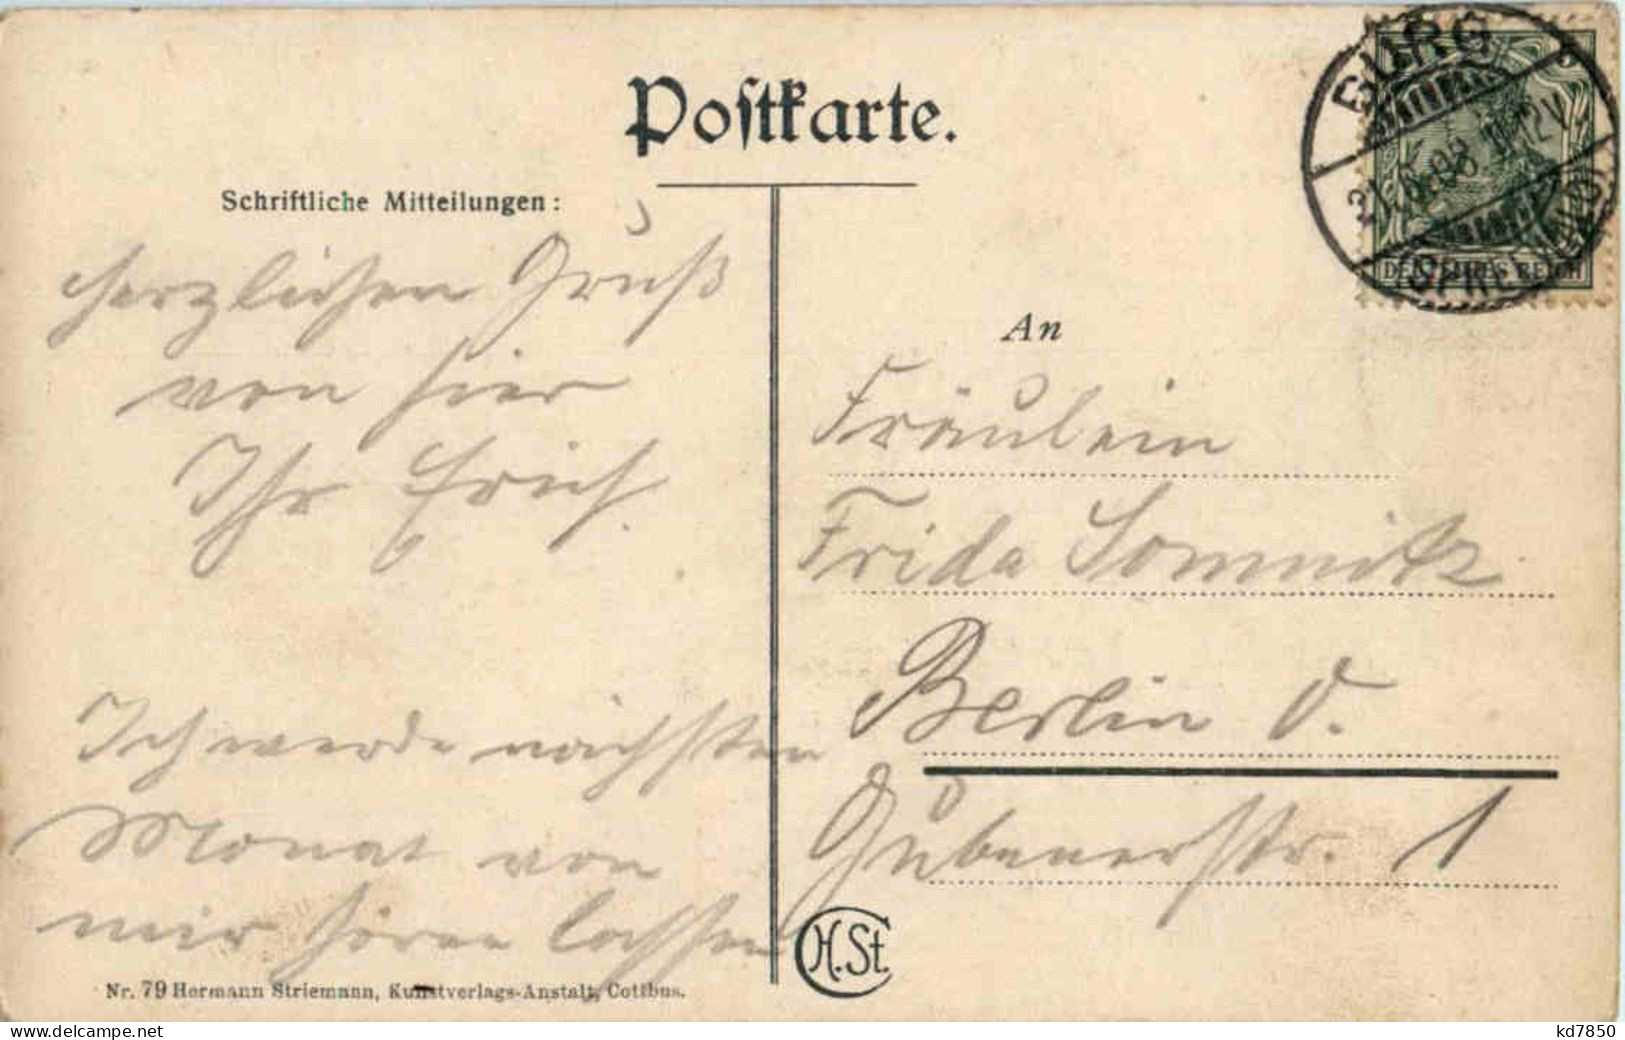 Postkarte.
Schriftliche Mitteilungen:
Herzlichen Gruß
von hier
Ihr Erich.
Ich werde nächsten
Monat von
mir hören lassen
Nr. 79 Hermann Striemann, Kunstverlags-Anstalt, Cottbus.
BURG
21.6.08. 11-12V.
(SPREEWALD)
DEUTSCHES REICH
An
Fräulein
Frida Somnitz
Berlin O.
Gubenerstr. 1
H.St.
www.delcampe.net
kd7850